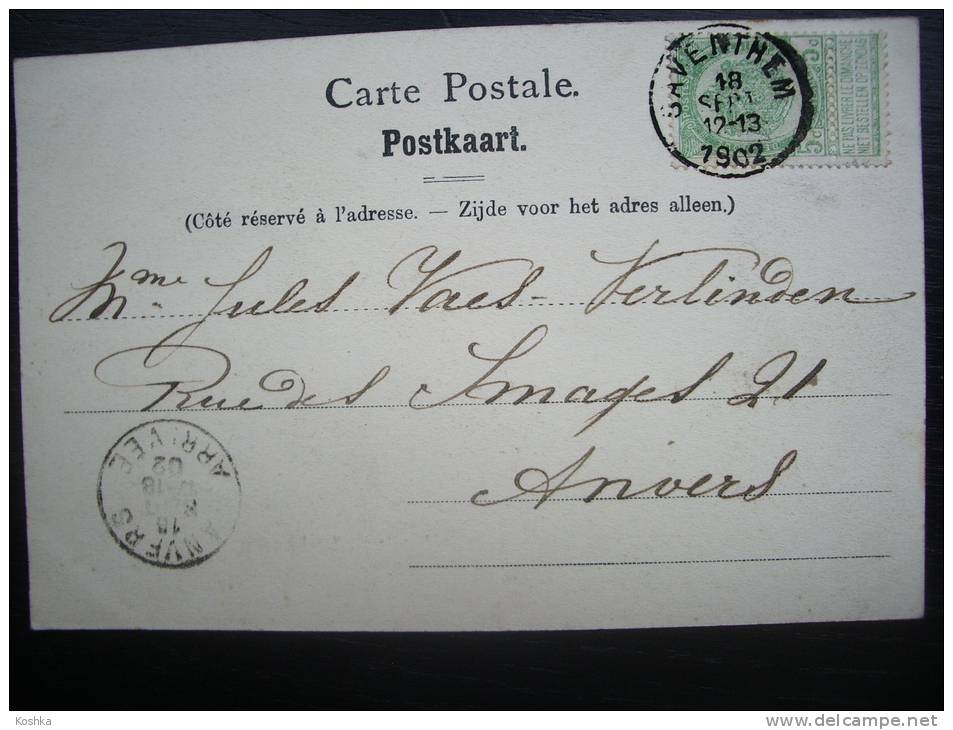 Carte Postale.
Postkaart.
(Côté réservé à l'adresse. — Zijde voor het adres alleen.)
SAVENTHEM
18
SEPT
12-13
1902
NE PAS LIVRER LE DIMANCHE
NIET BESTELLEN OP ZONDAG
Mme Jules Vaes-Verlinden
Rue des Images 21
Anvers
ANVERS
18
-18
02
ARRIVEE
Koshka
www.delcampe.net